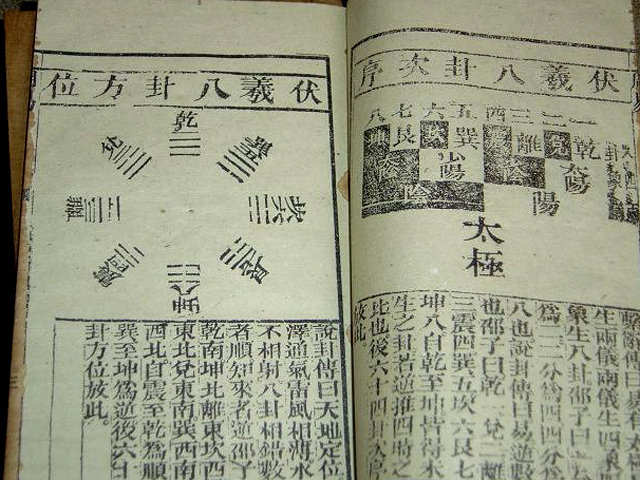 伏羲八卦次序
一 二 三 四 五 六 七 八
乾 兌 離 震 巽 坎 艮 坤
太陽 少陰 少陽 太陰
陽 陰
太極
繫辭傳曰易有太
生兩儀兩儀生四象
象生八卦邵子曰一
為二二分為四四分為
八也說卦傳曰易逆數
也邵子曰乾一兌二離
三震四巽五坎六艮七
坤八自乾至坤皆得未
生之卦若逆推四時之
比也後六十四卦次序
放此
伏羲八卦方位
乾一
兌二
離三
震四
巽五
坎六
艮七
坤八
說卦傳曰天地定位
澤通氣雷風相薄水
不相射八卦相錯數
者順知來者逆邵子
乾南坤北離東坎西
東北兌東南巽西南
西北自震至乾為順
巽至坤為逆後六十
卦方位放此。